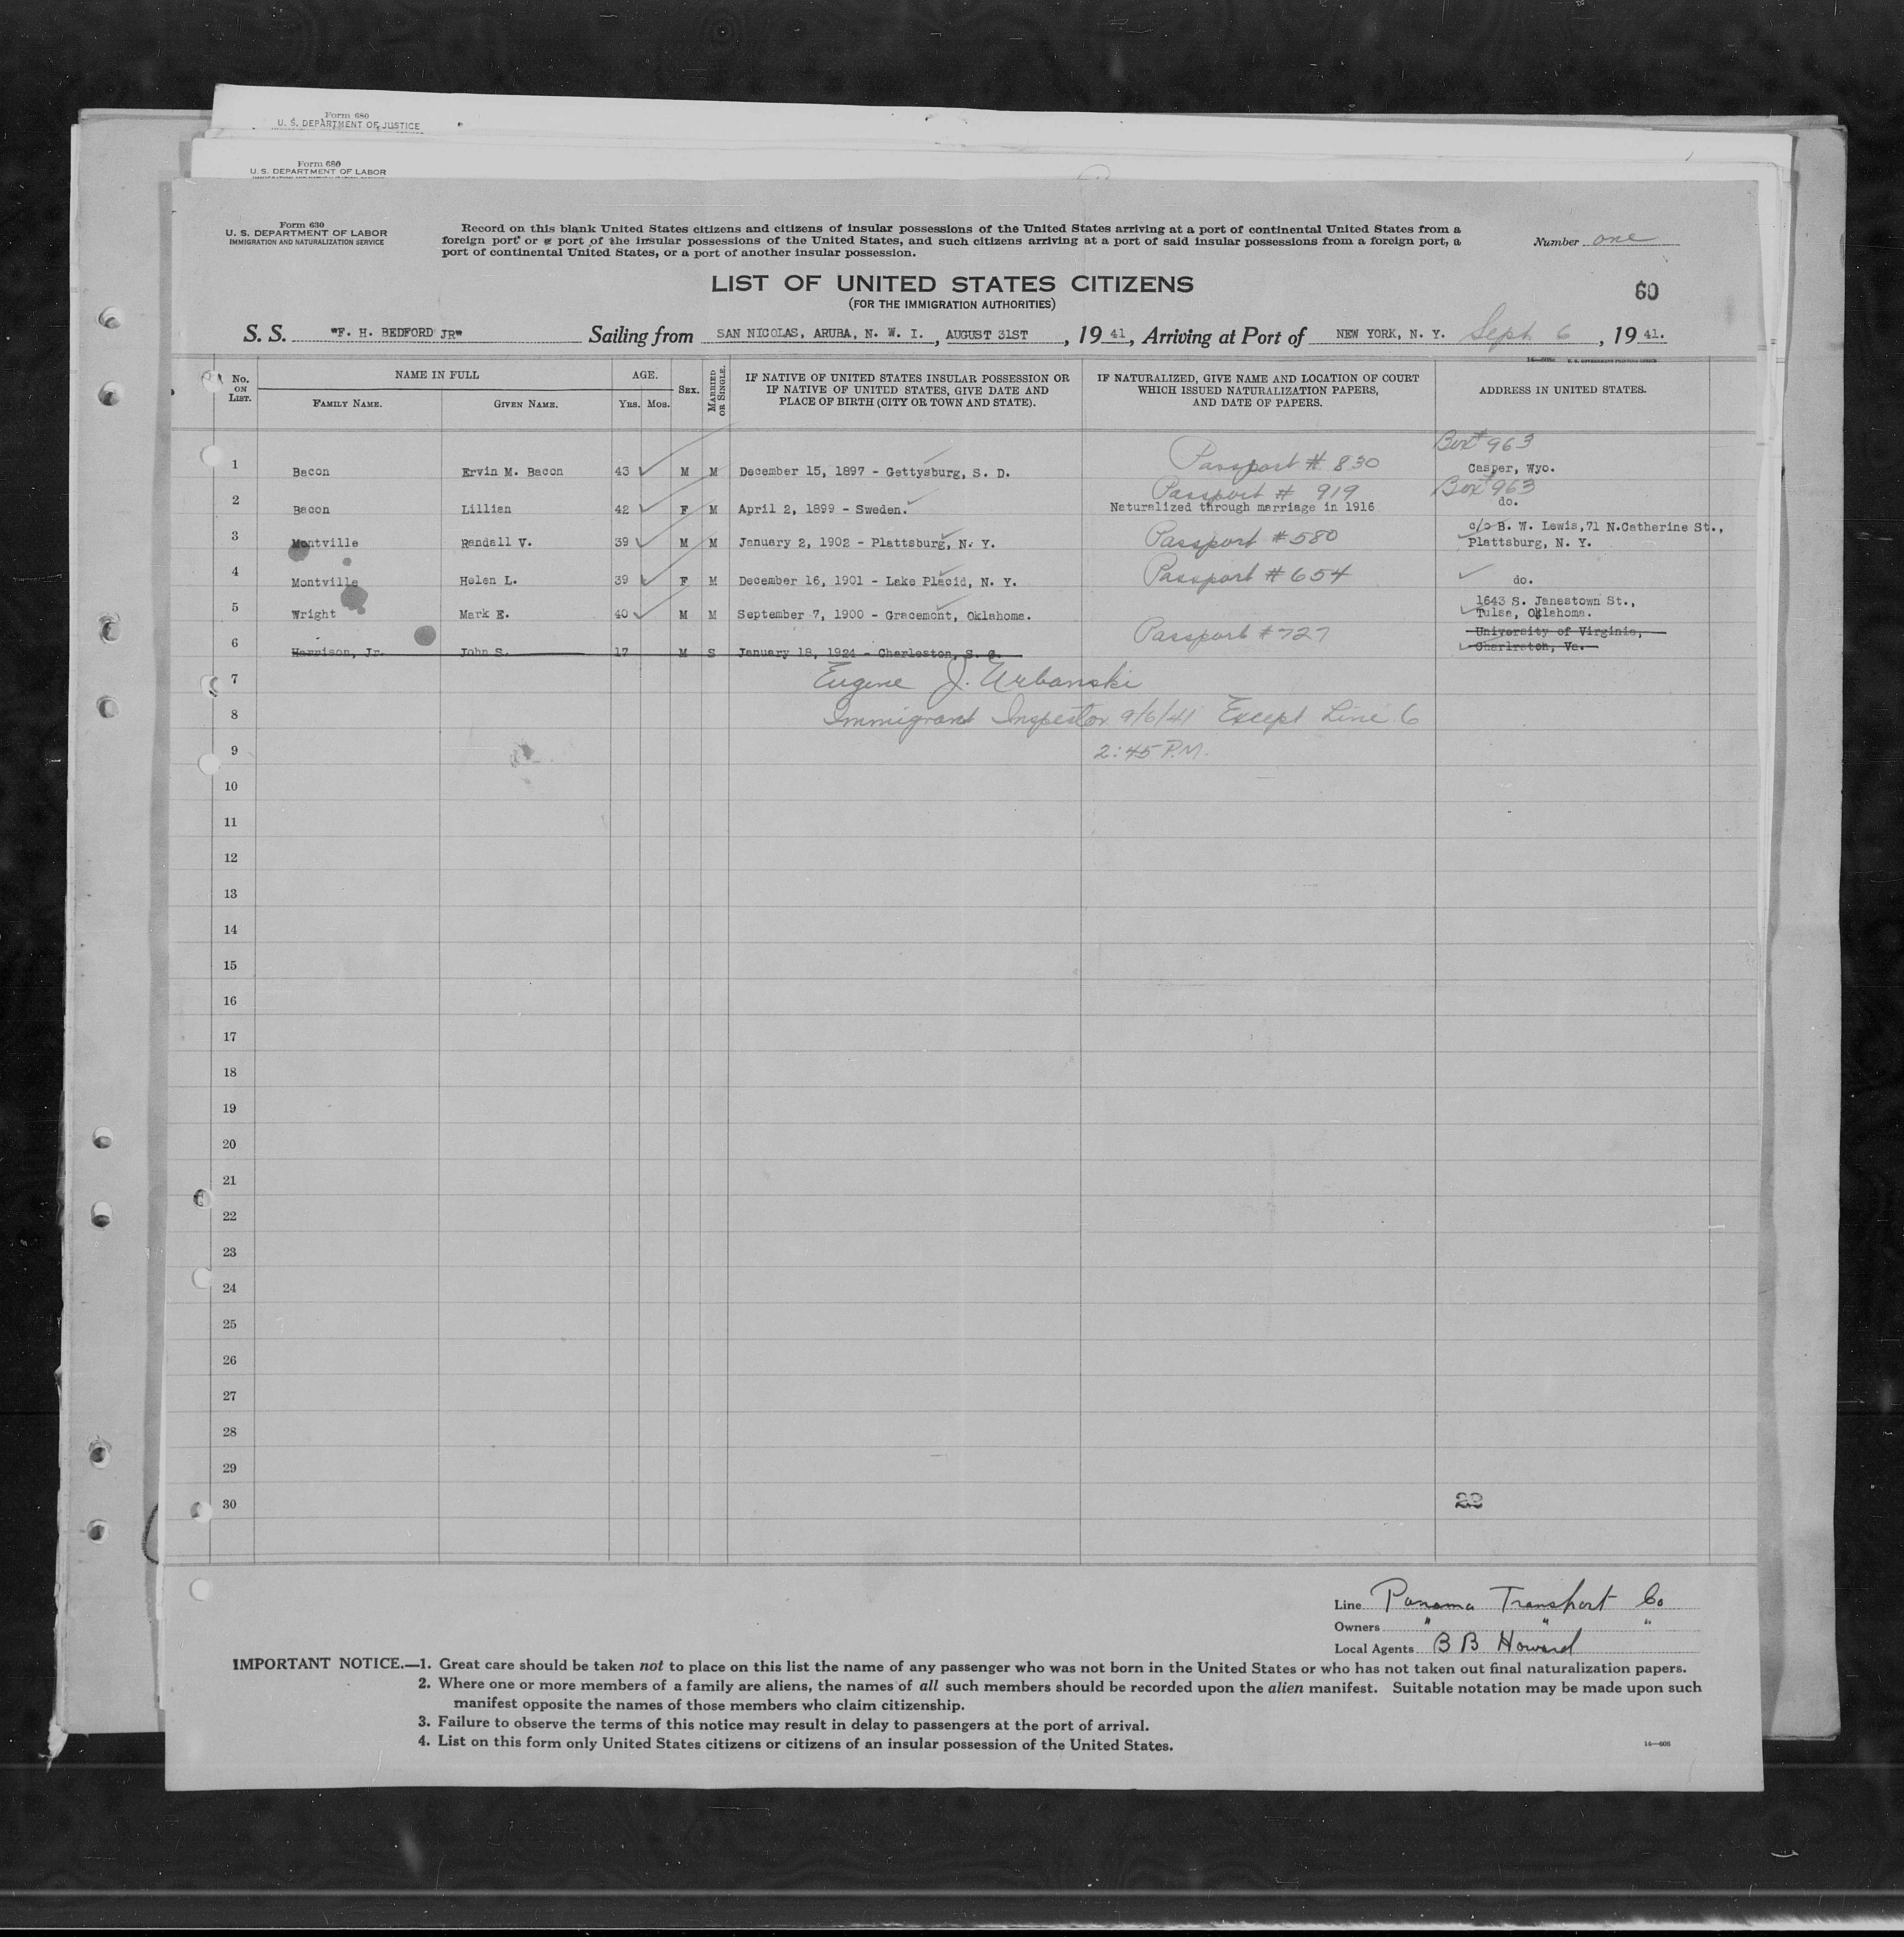 Form 680
U. S. DEPARTMENT OF JUSTICE
Form 680
U. S. DEPARTMENT OF LABOR
Form 630
U. S. DEPARTMENT OF LABOR
IMMIGRATION AND NATURALIZATION SERVICE
Record on this blank United States citizens and citizens of insular possessions of the United States arriving at a port of continental United States from a
foreign port or a port of the insular possessions of the United States, and such citizens arriving at a port of said insular possessions from a foreign port, a
port of continental United States, or a port of another insular possession.
Number one
LIST OF UNITED STATES CITIZENS
(FOR THE IMMIGRATION AUTHORITIES)
60
S. S. "F. H. BEDFORD JR" Sailing from SAN NICOLAS, ARUBA, N. W. I., AUGUST 31ST, 19 41, Arriving at Port of NEW YORK, N. Y. Sept. 6, 19 41.
U. S. GOVERNMENT PRINTING OFFICE
No. ON LIST. NAME IN FULL FAMILY NAME. GIVEN NAME. AGE. YRS. MOS. SEX. MARRIED OR SINGLE. IF NATIVE OF UNITED STATES INSULAR POSSESSION OR IF NATIVE OF UNITED STATES, GIVE DATE AND PLACE OF BIRTH (CITY OR TOWN AND STATE). IF NATURALIZED, GIVE NAME AND LOCATION OF COURT WHICH ISSUED NATURALIZATION PAPERS, AND DATE OF PAPERS. ADDRESS IN UNITED STATES.
Box # 963
1 Bacon Ervin M. Bacon 43 M M December 15, 1897 - Gettysburg, S. D. Passport # 830 Casper, Wyo.
Passport # 919 Box # 963
2 Bacon Lillian 42 F M April 2, 1899 - Sweden. Naturalized through marriage in 1916 do.
c/o B. W. Lewis, 71 N.Catherine St.,
3 Montville Randall V. 39 M M January 2, 1902 - Plattsburg, N. Y. Passport # 580 Plattsburg, N. Y.
4 Montville Helen L. 39 F M December 16, 1901 - Lake Placid, N. Y. Passport # 654 do.
1643 S. Janestown St.,
5 Wright Mark E. 40 M M September 7, 1900 - Gracemont, Oklahoma. Tulsa, Oklahoma.
Passport # 727 University of Virginia,
6 Harrison, Jr. John S. 17 M S January 18, 1924 - Charleston, S. C. Charlrston, Va.
7 Eugene J. Urbanski
8 Immigrant Inspector 9/6/41 Except Line 6
9 2:45 P.M.
10
11
12
13
14
15
16
17
18
19
20
21
22
23
24
25
26
27
28
29
30
22
Line Panama Transport Co
Owners " " "
Local Agents B B Howard
IMPORTANT NOTICE.—1. Great care should be taken not to place on this list the name of any passenger who was not born in the United States or who has not taken out final naturalization papers.
2. Where one or more members of a family are aliens, the names of all such members should be recorded upon the alien manifest. Suitable notation may be made upon such
manifest opposite the names of those members who claim citizenship.
3. Failure to observe the terms of this notice may result in delay to passengers at the port of arrival.
4. List on this form only United States citizens or citizens of an insular possession of the United States.
14—608